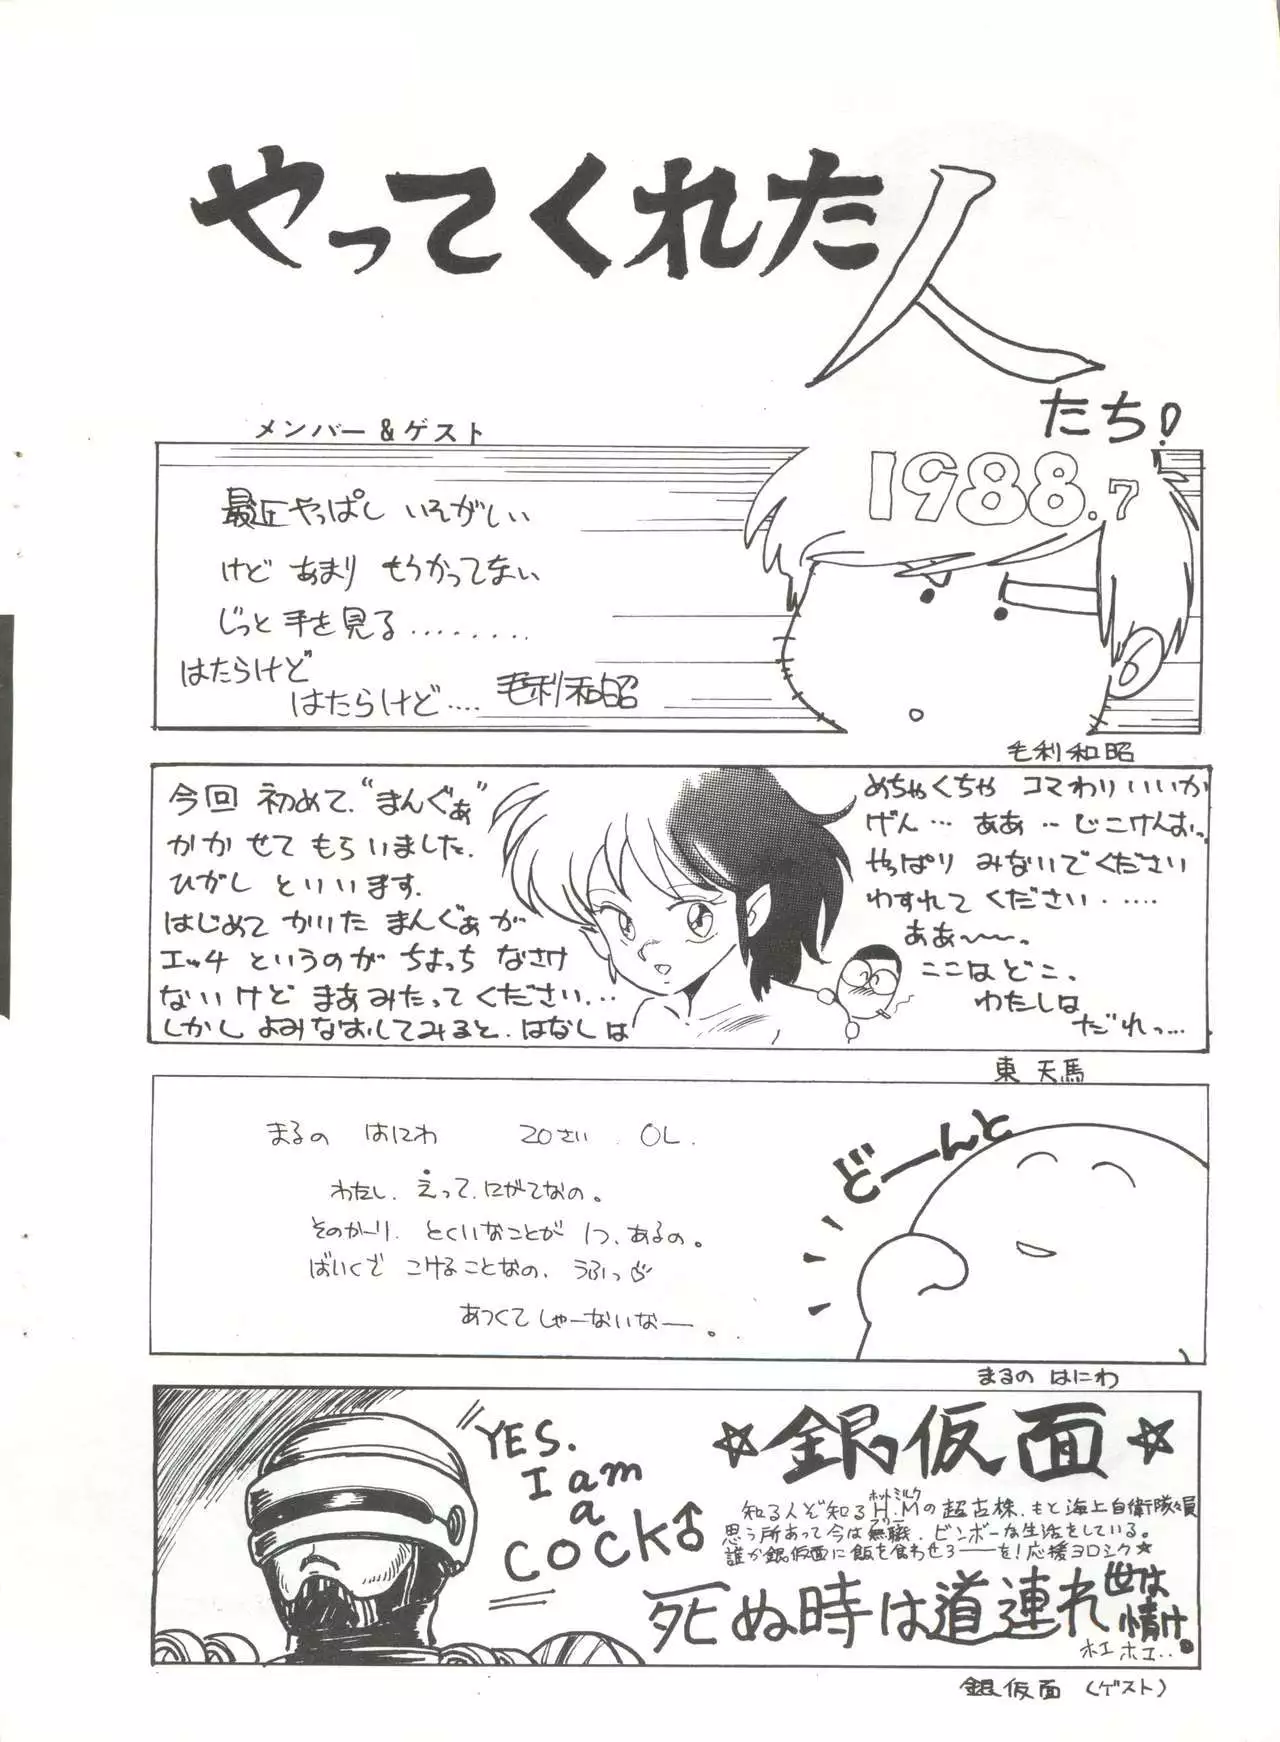 やってくれた人
たち!
1988.7
メンバー&ゲスト
最近やっぱし いそがしい
けど あまり もうかってない
じっと 手を見る........
はたらけど
はたらけど....
毛利和昭
毛利和昭
今回 初めて、"まんぐぁ"
かかせて もらいました.
ひがし といいます.
はじめて かいた まんぐぁが
エッチ というのが ちょっち なさけ
ないけど まあみたってください...
しかし よみなおしてみると、はなしは
めちゃくちゃ コマわりいいか
げん… ああ… じこけんおっ
やっぱり みないでください
わすれて ください......
ああ〜〜。
ここはどこ、
わたしは
だれっ...
東 天馬
まるの はにわ 20さい. OL.
わたし、えって、にがてなの。
そのかーり、とくいなことが 1つ、あるの。
ばいくで こけることなの、うふっ♡
あつくて しゃーないなー。
どーんと
まるの はにわ
YES.
I am
a
COCK♂
☆銀仮面☆
ホットミルク
知る人ぞ知るH.Mの超古株、もと海上自衛隊々員
フリー
思う所あって今は無職、ビンボーな生活をしている。
誰か銀仮面に飯を食わせろ――を!応援ヨロシク☆
死ぬ時は道連れ
世は
情け。
ホエ ホエ..
銀仮面 (ゲスト)